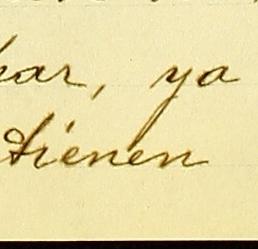 ar, ya
tienen